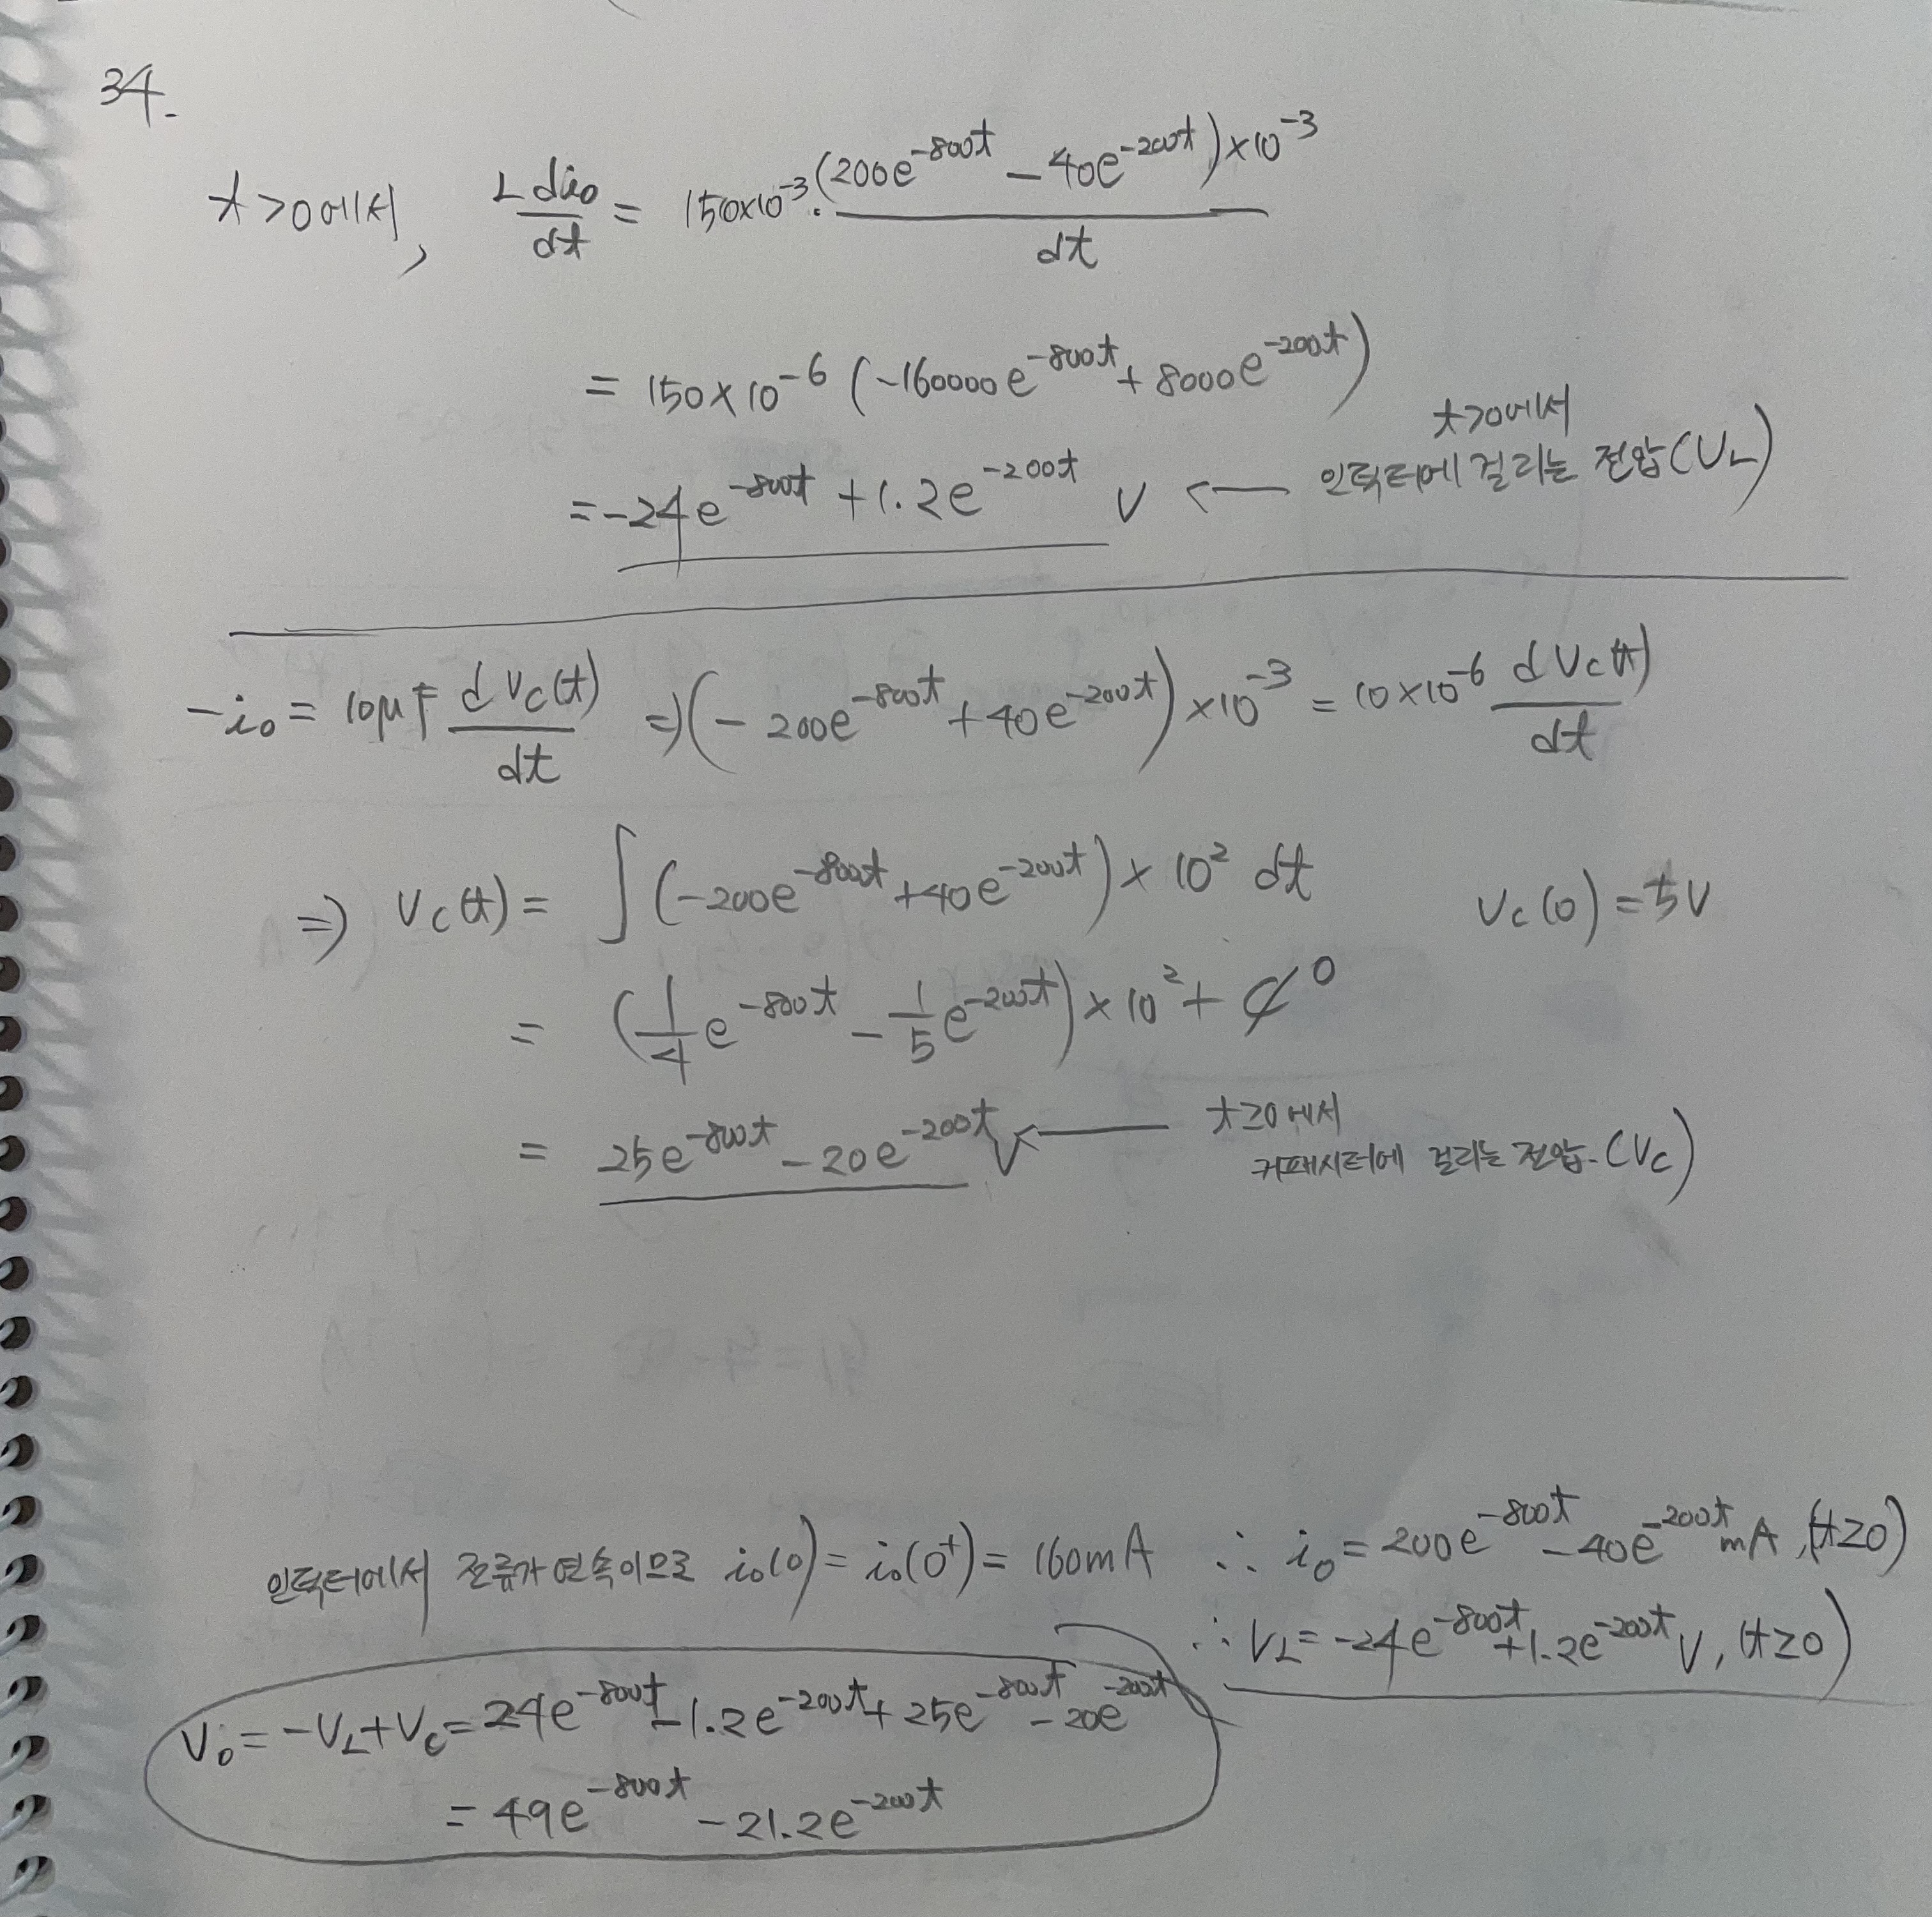 34.
t>0에서, L di₀/dt = 150×10⁻³·(200e^{-800t} - 40e^{-200t})×10⁻³/dt
= 150×10⁻⁶ (-160000e^{-800t} + 8000e^{-200t})
t>0에서
= -24e^{-800t} + 1.2e^{-200t} V ← 인덕터에 걸리는 전압(V_L)
-i₀ = 10μF dV_C(t)/dt ⇒ (-200e^{-800t} + 40e^{-200t})×10⁻³ = 10×10⁻⁶ dV_C(t)/dt
⇒ V_C(t) = ∫(-200e^{-800t} + 40e^{-200t})×10² dt V_C(0) = 5V
= (1/4 e^{-800t} - 1/5 e^{-200t})×10² + C 0
= 25e^{-800t} - 20e^{-200t} V ← t≥0에서
커패시터에 걸리는 전압.(V_C)
인덕터에서 전류가 연속이므로 i₀(0) = i₀(0⁺) = 160mA ∴ i₀ = 200e^{-800t} - 40e^{-200t} mA, (t≥0)
∴ V_L = -24e^{-800t} + 1.2e^{-200t} V, (t≥0)
V₀ = -V_L + V_C = 24e^{-800t} - 1.2e^{-200t} + 25e^{-800t} - 20e^{-200t}
= 49e^{-800t} - 21.2e^{-200t}